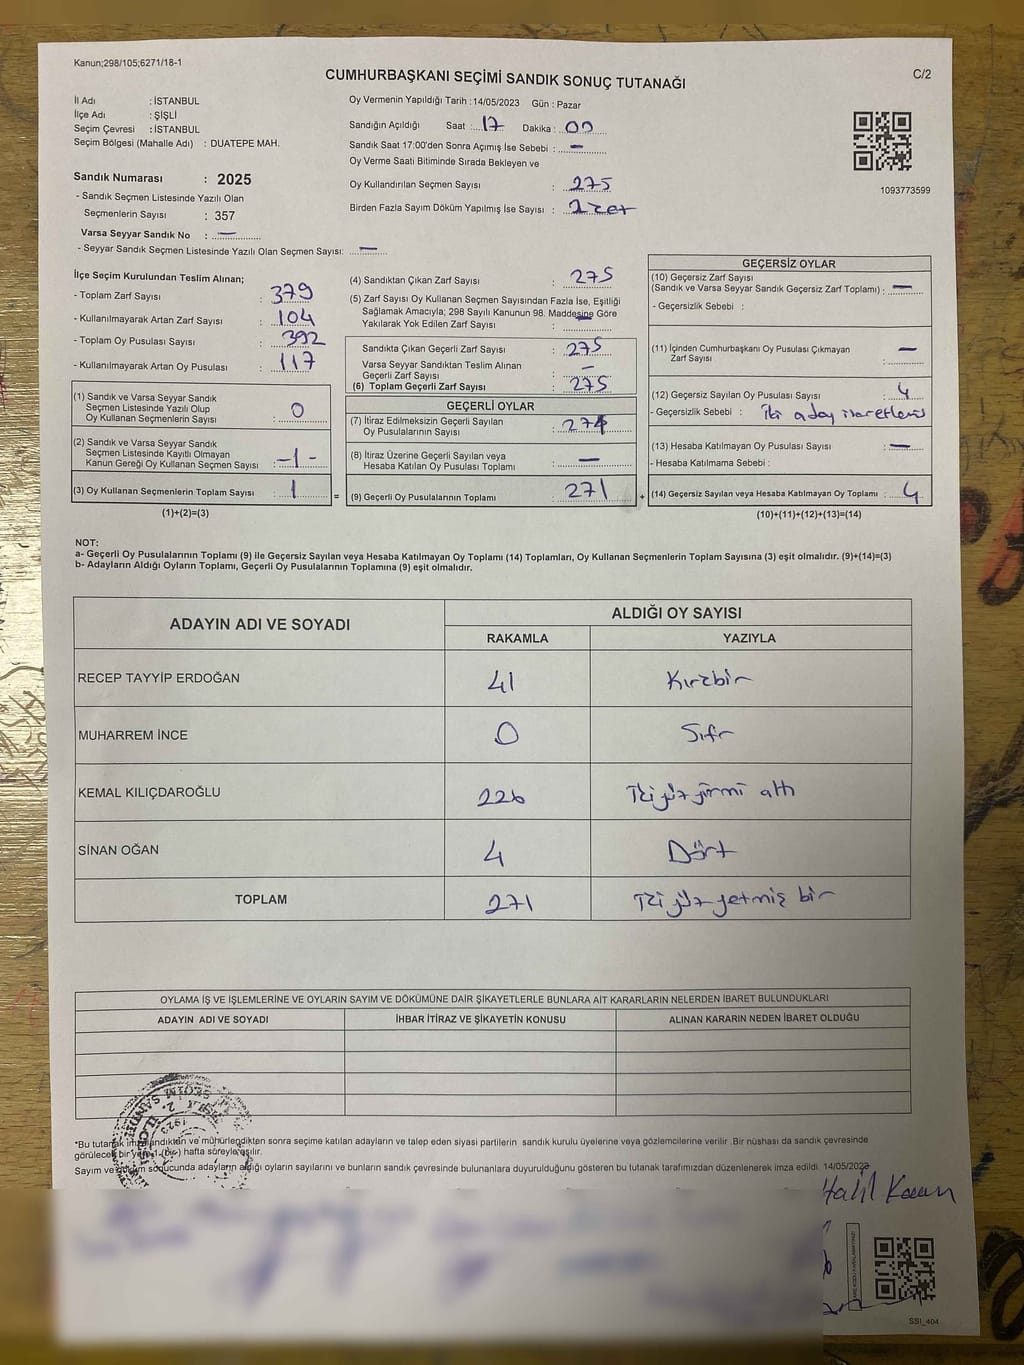 Kanun;298/105;6271/18-1
C/2
CUMHURBAŞKANI SEÇİMİ SANDIK SONUÇ TUTANAĞI
İl Adı : İSTANBUL
İlçe Adı : ŞİŞLİ
Seçim Çevresi : İSTANBUL
Seçim Bölgesi (Mahalle Adı) : DUATEPE MAH.
Sandık Numarası : 2025
- Sandık Seçmen Listesinde Yazılı Olan
Seçmenlerin Sayısı : 357
Varsa Seyyar Sandık No : —
- Seyyar Sandık Seçmen Listesinde Yazılı Olan Seçmen Sayısı: —
Oy Vermenin Yapıldığı Tarih : 14/05/2023 Gün : Pazar
Sandığın Açıldığı Saat : 17 Dakika : 00
Sandık Saat 17:00'den Sonra Açımış İse Sebebi : —
Oy Verme Saati Bitiminde Sırada Bekleyen ve
Oy Kullandırılan Seçmen Sayısı : 275
Birden Fazla Sayım Döküm Yapılmış İse Sayısı :
1093773599
İlçe Seçim Kurulundan Teslim Alınan;
- Toplam Zarf Sayısı : 379
- Kullanılmayarak Artan Zarf Sayısı : 104
- Toplam Oy Pusulası Sayısı : 392
- Kullanılmayarak Artan Oy Pusulası : 117
(1) Sandık ve Varsa Seyyar Sandık
Seçmen Listesinde Yazılı Olup
Oy Kullanan Seçmenlerin Sayısı : 0
(2) Sandık ve Varsa Seyyar Sandık
Seçmen Listesinde Kayıtlı Olmayan
Kanun Gereği Oy Kullanan Seçmen Sayısı : -1-
(3) Oy Kullanan Seçmenlerin Toplam Sayısı : 1
(1)+(2)=(3)
=
(4) Sandıktan Çıkan Zarf Sayısı : 275
(5) Zarf Sayısı Oy Kullanan Seçmen Sayısından Fazla İse, Eşitliği
Sağlamak Amacıyla; 298 Sayılı Kanunun 98. Maddesine Göre
Yakılarak Yok Edilen Zarf Sayısı : —
Sandıkta Çıkan Geçerli Zarf Sayısı : 275
Varsa Seyyar Sandıktan Teslim Alınan
Geçerli Zarf Sayısı : —
(6) Toplam Geçerli Zarf Sayısı : 275
GEÇERLİ OYLAR
(7) İtiraz Edilmeksizin Geçerli Sayılan
Oy Pusulalarının Sayısı :
(8) İtiraz Üzerine Geçerli Sayılan veya
Hesaba Katılan Oy Pusulası Toplamı : —
(9) Geçerli Oy Pusulalarının Toplamı : 271
+
GEÇERSİZ OYLAR
(10) Geçersiz Zarf Sayısı
(Sandık ve Varsa Seyyar Sandık Geçersiz Zarf Toplamı) : —
- Geçersizlik Sebebi :
(11) İçinden Cumhurbaşkanı Oy Pusulası Çıkmayan
Zarf Sayısı : —
(12) Geçersiz Sayılan Oy Pusulası Sayısı : 4
- Geçersizlik Sebebi : İki aday
(13) Hesaba Katılmayan Oy Pusulası Sayısı : —
- Hesaba Katılmama Sebebi :
(14) Geçersiz Sayılan veya Hesaba Katılmayan Oy Toplamı : 4
(10)+(11)+(12)+(13)=(14)
NOT:
a- Geçerli Oy Pusulalarının Toplamı (9) ile Geçersiz Sayılan veya Hesaba Katılmayan Oy Toplamı (14) Toplamları, Oy Kullanan Seçmenlerin Toplam Sayısına (3) eşit olmalıdır. (9)+(14)=(3)
b- Adayların Aldığı Oyların Toplamı, Geçerli Oy Pusulalarının Toplamına (9) eşit olmalıdır.
ADAYIN ADI VE SOYADI ALDIĞI OY SAYISI
RAKAMLA YAZIYLA
RECEP TAYYİP ERDOĞAN 41 Kırkbir
MUHARREM İNCE 0 Sıfır
KEMAL KILIÇDAROĞLU 226 İki yüz yirmi altı
SİNAN OĞAN 4 Dört
TOPLAM 271 İki yüz yetmiş bir
OYLAMA İŞ VE İŞLEMLERİNE VE OYLARIN SAYIM VE DÖKÜMÜNE DAİR ŞİKAYETLERLE BUNLARA AİT KARARLARIN NELERDEN İBARET BULUNDUKLARI
ADAYIN ADI VE SOYADI İHBAR İTİRAZ VE ŞİKAYETİN KONUSU ALINAN KARARIN NEDEN İBARET OLDUĞU
*Bu tutanak imzalandıktan ve mühürlendikten sonra seçime katılan adayların ve talep eden siyasi partilerin sandık kurulu üyelerine veya gözlemcilerine verilir .Bir nüshası da sandık çevresinde
görülecek bir yere 1 (bir) hafta süreyle asılır.
Sayım ve döküm sonucunda adayların aldığı oyların sayılarını ve bunların sandık çevresinde bulunanlara duyurulduğunu gösteren bu tutanak tarafımızdan düzenlenerek imza edildi. 14/05/2023
Halil
SSI_404